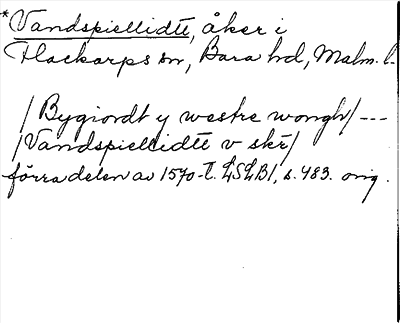 *Vandspiellidtt, åker i
Flackarps sn, Bara hd, Malm. l.
/Bygiordt y westre wongh/ ---
/Vandspiellidtt v skr/
förra delen av 1570-t. LSLB1, s. 483. orig.